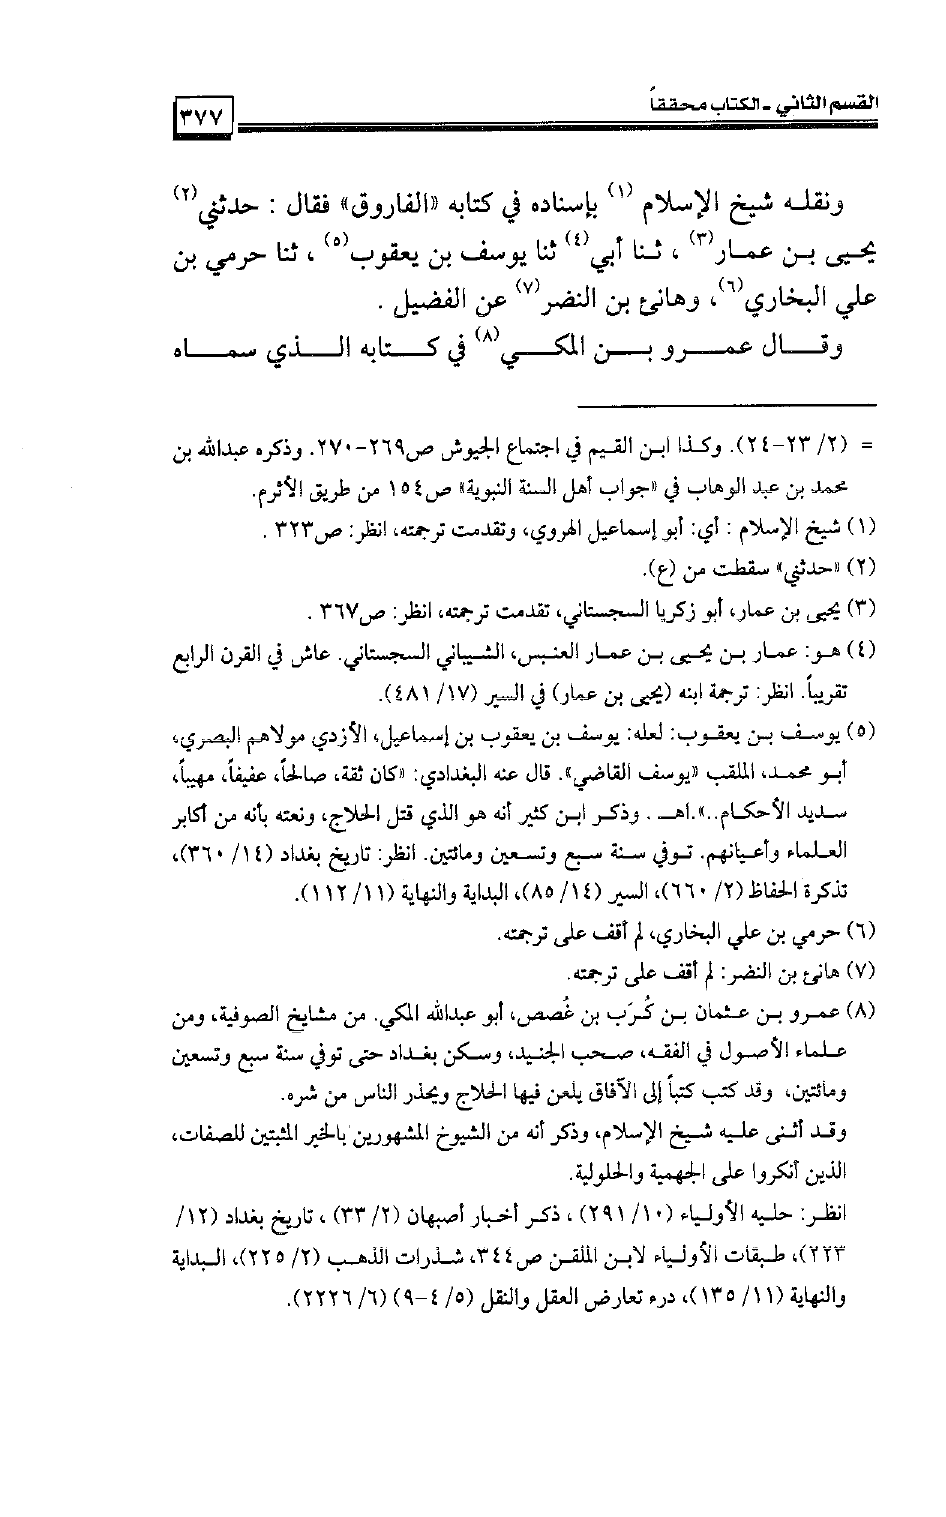 القسم الثاني - الكتاب محققاً
٣٧٧
ونقله شيخ الإسلام (١) بإسناده في كتابه «الفاروق» فقال : حدثني (٢)
يحيى بن عمار (٣) ، ثنا أبي (٤) ثنا يوسف بن يعقوب (٥) ، ثنا حرمي بن
علي البخاري (٦)، وهانئ بن النضر (٧) عن الفضيل .
وقال عمرو بن المكي (٨) في كتابه الذي سماه
= (٢/ ٢٣-٢٤). وكذا ابن القيم في اجتماع الجيوش ص٢٦٩-٢٧٠. وذكره عبدالله بن
محمد بن عبد الوهاب في «جواب أهل السنة النبوية» ص١٥٤ من طريق الأثرم.
(١) شيخ الإسلام : أي: أبو إسماعيل الهروي، وتقدمت ترجمته، انظر: ص٣٢٣ .
(٢) «حدثني» سقطت من (ع).
(٣) يحيى بن عمار، أبو زكريا السجستاني، تقدمت ترجمته، انظر: ص٣٦٧ .
(٤) هو: عمار بن يحيى بن عمار العنبس، الشيباني السجستاني. عاش في القرن الرابع
تقريباً. انظر: ترجمة ابنه (يحيى بن عمار) في السير (١٧/ ٤٨١).
(٥) يوسف بن يعقوب: لعله: يوسف بن يعقوب بن إسماعيل، الأزدي مولاهم البصري،
أبو محمد، الملقب «يوسف القاضي». قال عنه البغدادي: «كان ثقة، صالحاً، عفيفاً، مهيباً،
سديد الأحكام..».اهـ . وذكر ابن كثير أنه هو الذي قتل الحلاج، ونعته بأنه من أكابر
العلماء وأعيانهم. توفي سنة سبع وتسعين ومائتين. انظر: تاريخ بغداد (١٤/ ٣٦٠)،
تذكرة الحفاظ (٢/ ٦٦٠)، السير (١٤/ ٨٥)، البداية والنهاية (١١/ ١١٢).
(٦) حرمي بن علي البخاري، لم أقف على ترجمته.
(٧) هانئ بن النضر: لم أقف على ترجمته.
(٨) عمرو بن عثمان بن كُرَب بن غُصص، أبو عبدالله المكي. من مشايخ الصوفية، ومن
علماء الأصول في الفقه، صحب الجنيد، وسكن بغداد حتى توفي سنة سبع وتسعين
ومائتين، وقد كتب كتباً إلى الآفاق يلعن فيها الحلاج ويحذر الناس من شره.
وقد أثنى عليه شيخ الإسلام، وذكر أنه من الشيوخ المشهورين بالخير المثبتين للصفات،
الذين أنكروا على الجهمية والحلولية.
انظر: حليه الأولياء (١٠/ ٢٩١) ، ذكر أخبار أصبهان (٢/ ٣٣) ، تاريخ بغداد (١٢/
٢٢٣)، طبقات الأولياء لابن الملقن ص٣٤٤، شذرات الذهب (٢/ ٢٢٥)، البداية
والنهاية (١١/ ١٣٥)، درء تعارض العقل والنقل (٥/ ٤-٩) (٦/ ٢٢٢٦).